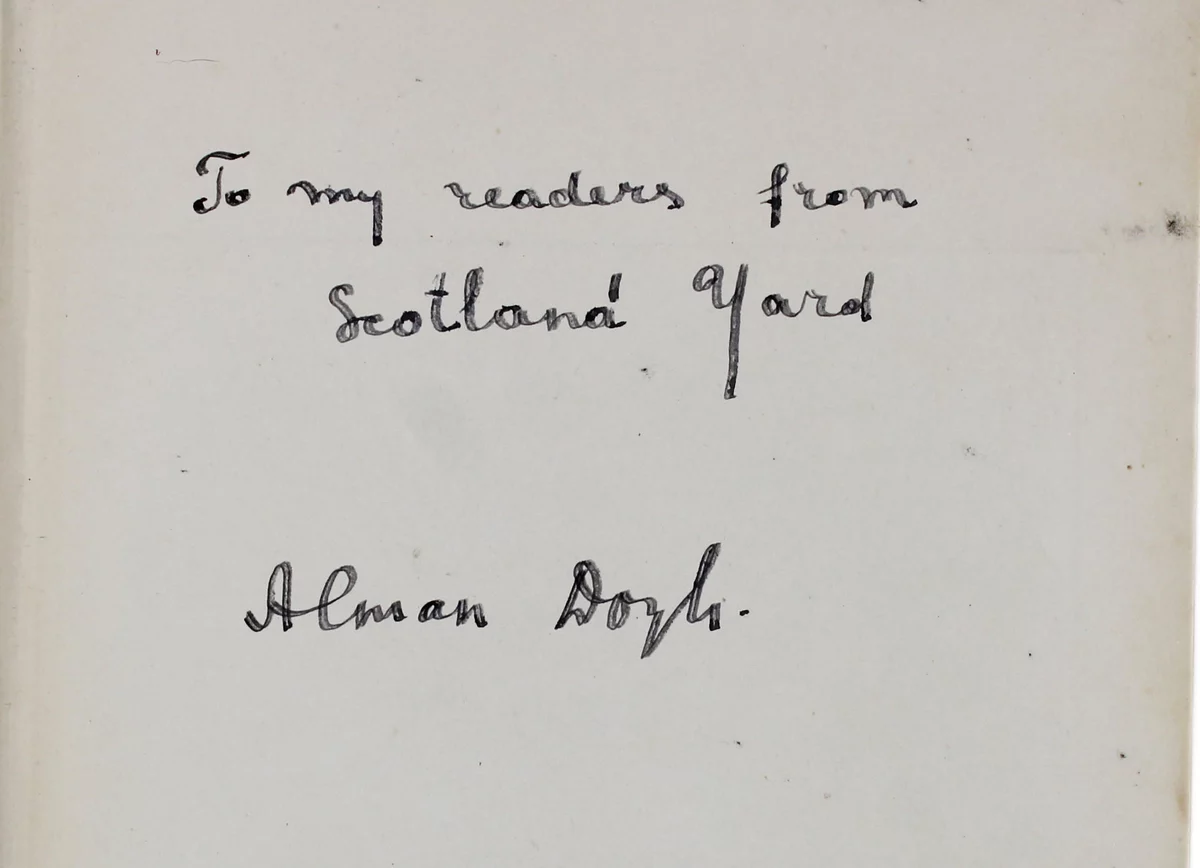 To my readers from
Scotland Yard
Alman Doyh.